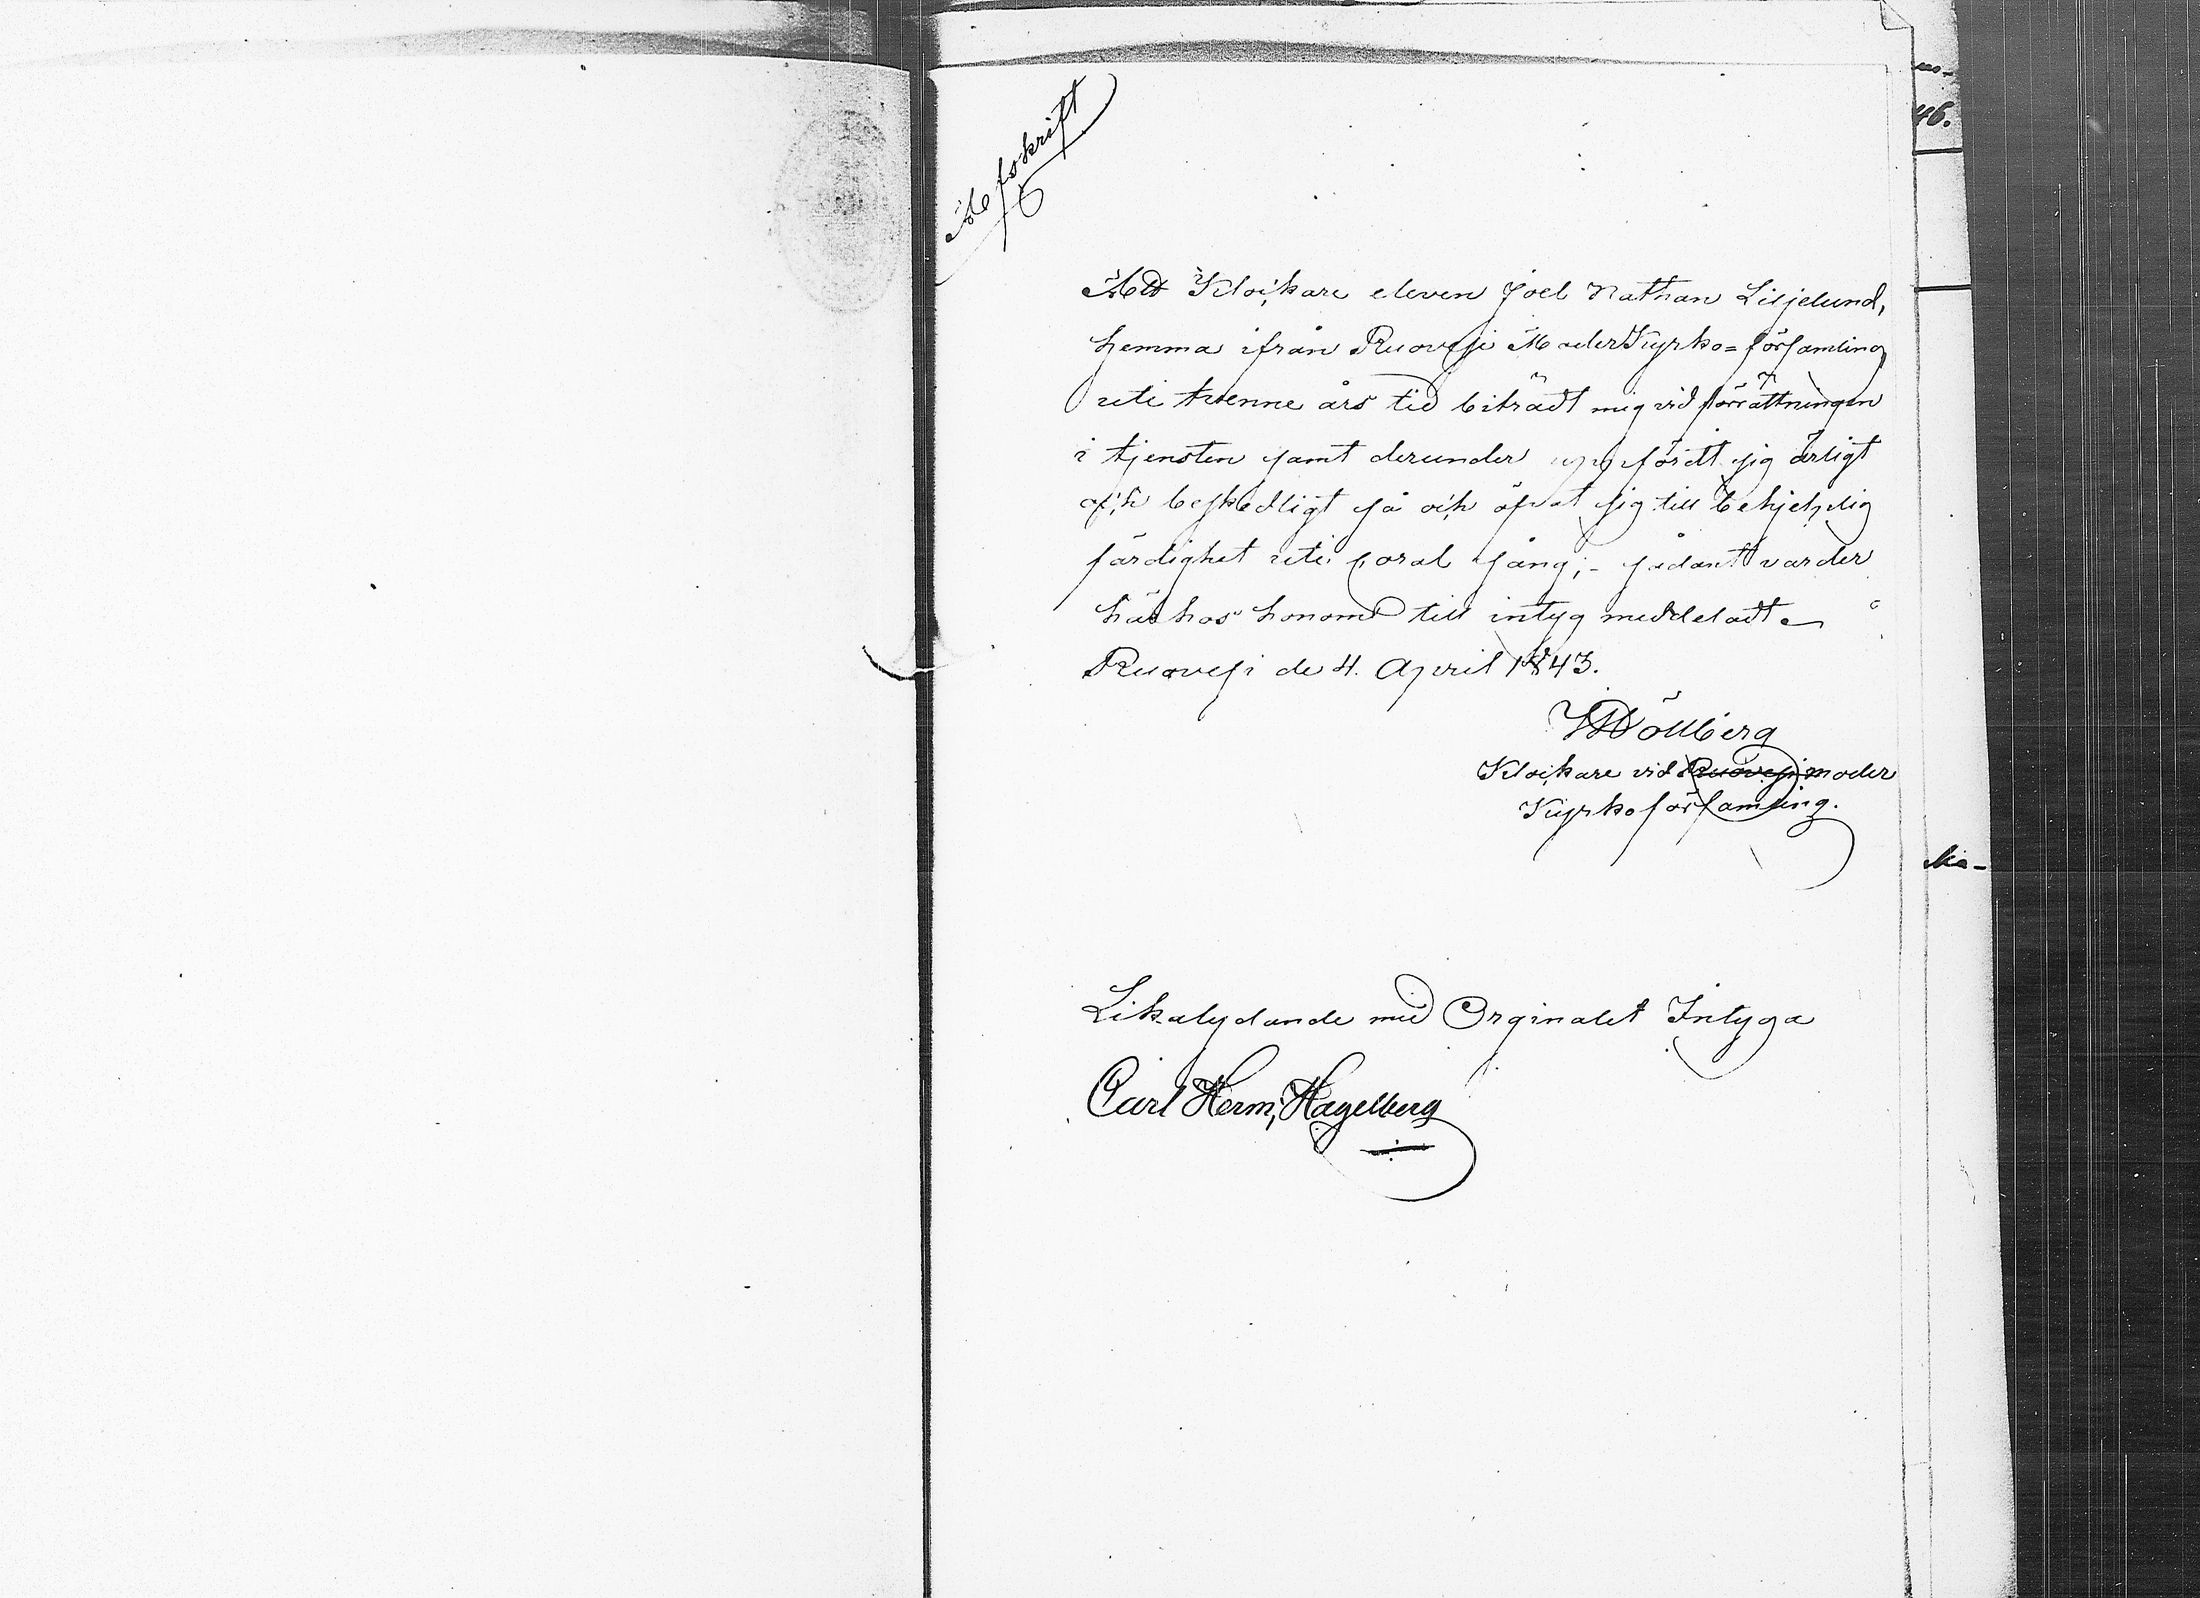 Afskrift
Att Klockare eleven Joel Nathan Liljelund,
hemma ifrån Ruovesi ModerKyrko=församling
uti tvenne års tid biträdt mig vid förrättningen
i tjensten samt derunder uppfördt sig ärligt
och beskedligt så och öfvat sig till behjelplig
färdighet uti coral sång;- sådant varder
här hos honom till intyg meddeladt
Ruovesi de 4. April 1843.
Klockare vid Ruovesi moder
Kyrkoförsamling.
Likalydande med Orginalet Intyga
Carl Herm; Hagelberg
46.